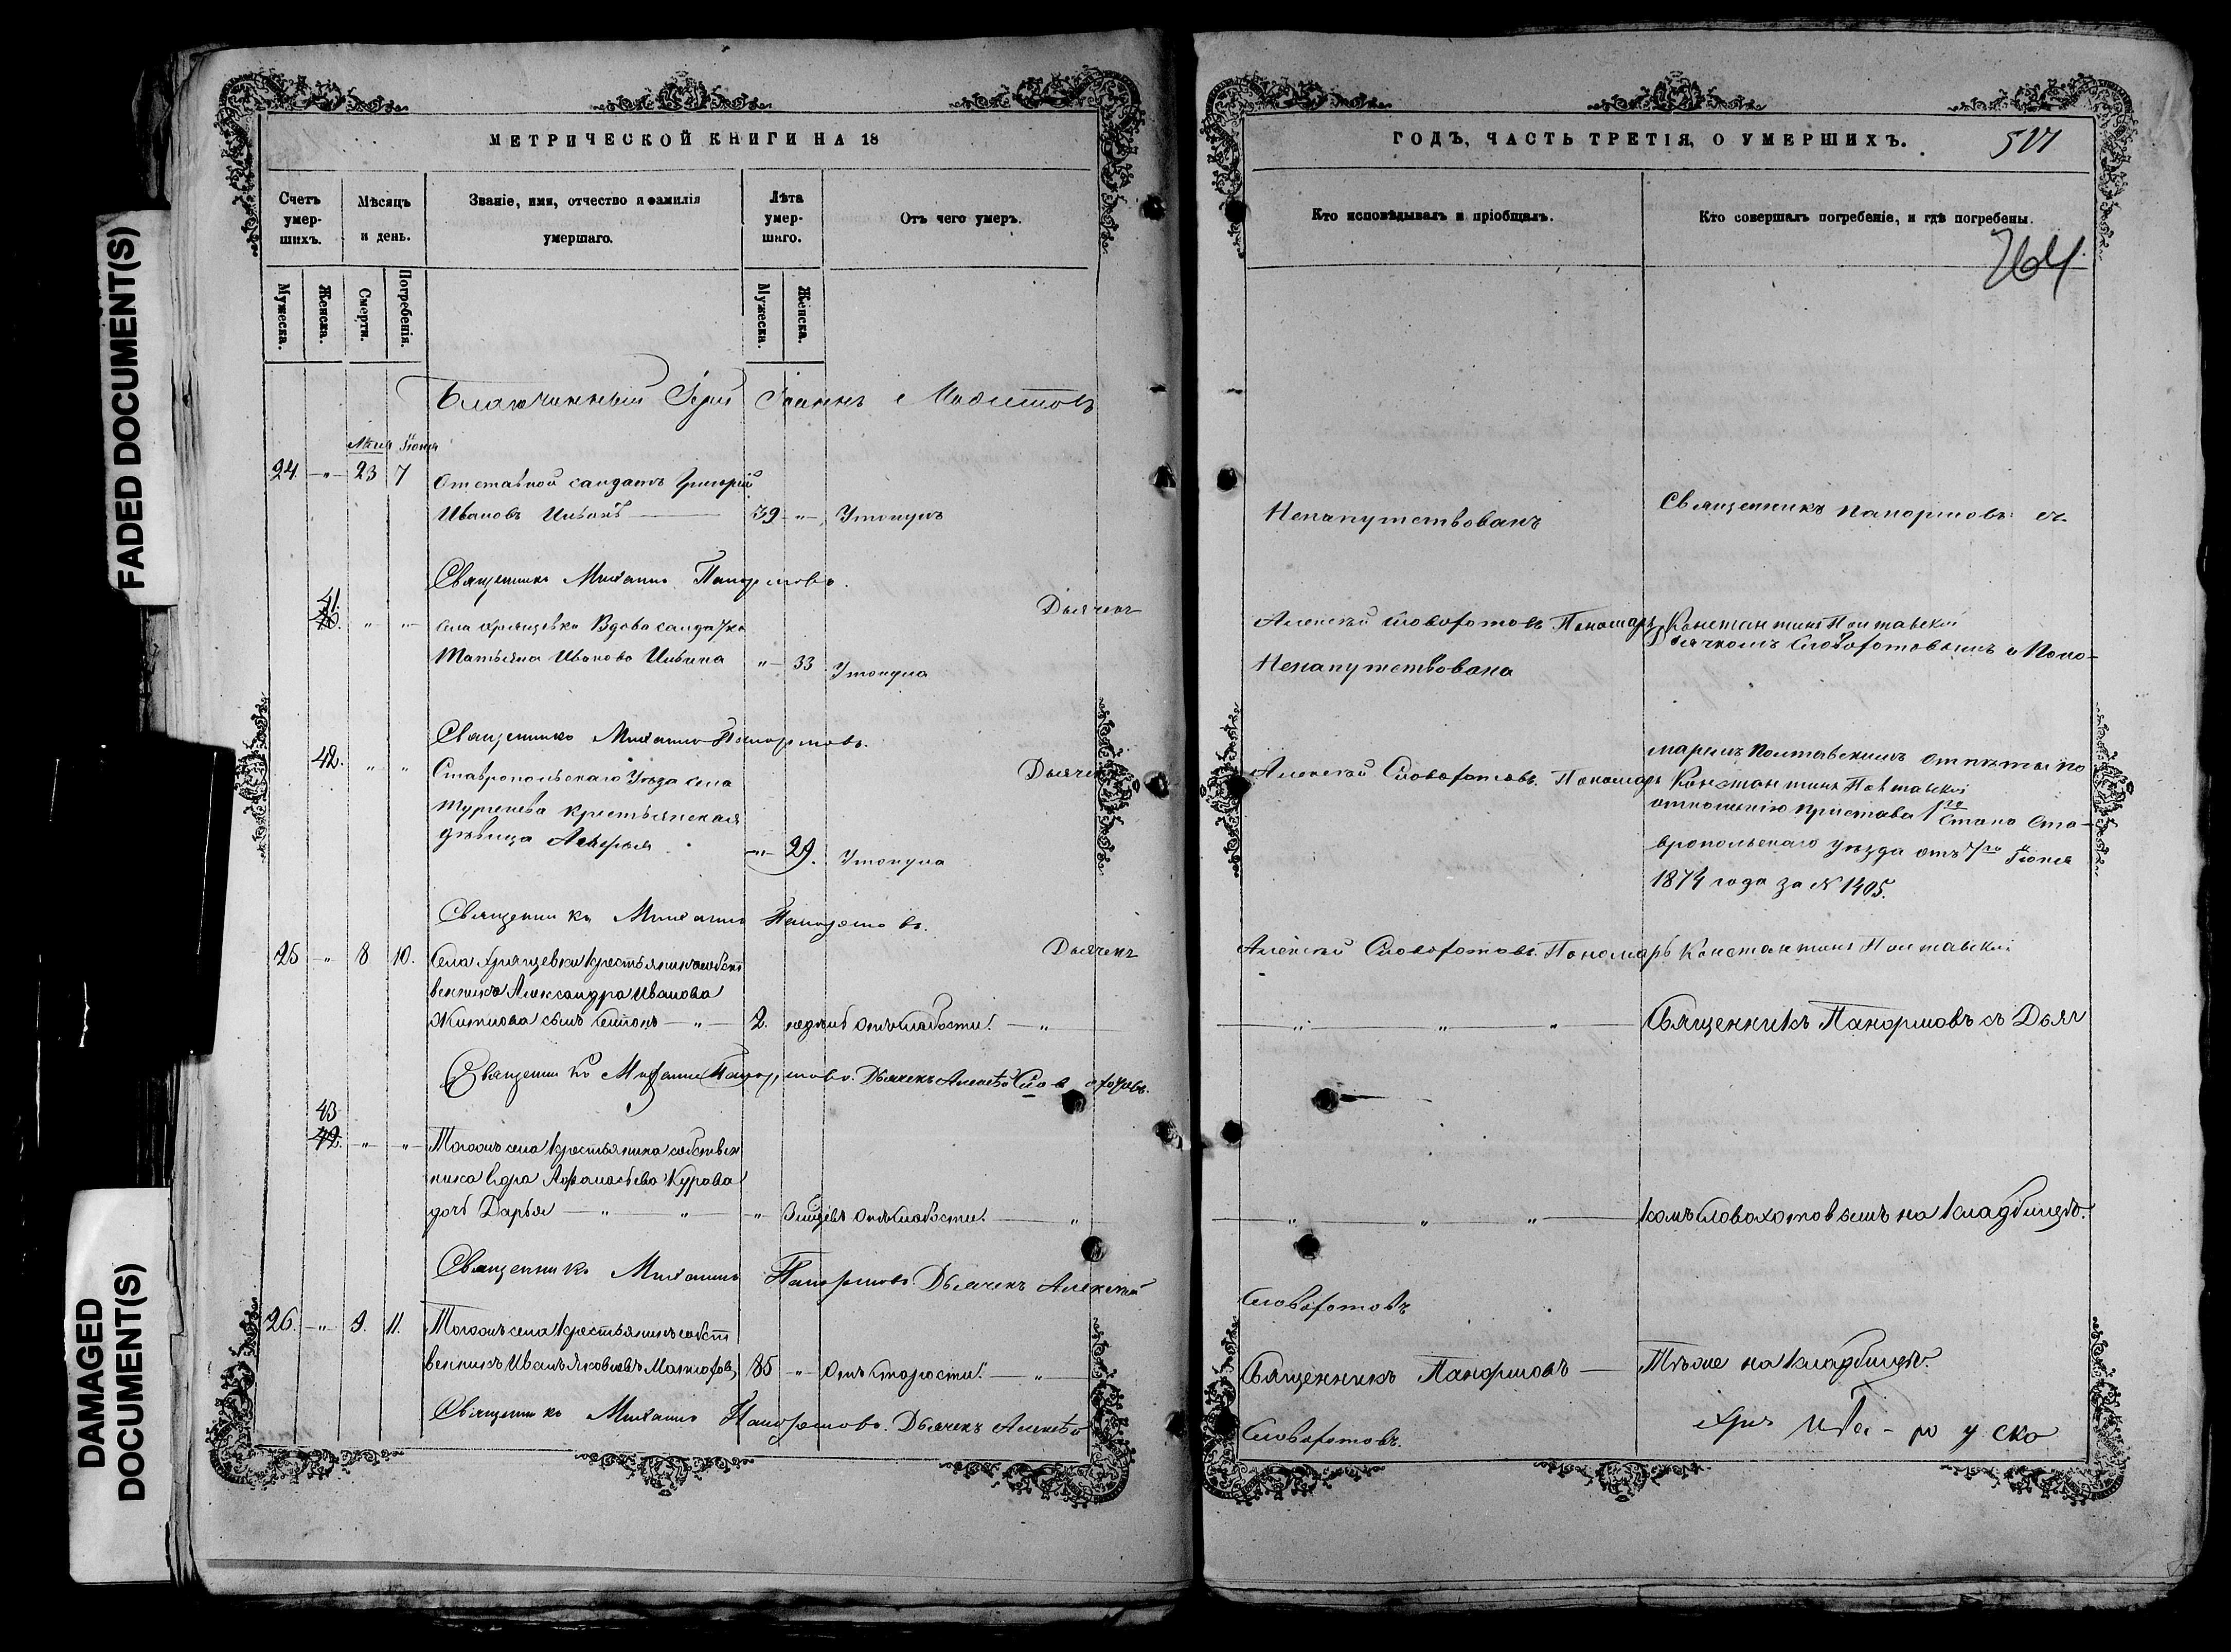 FADED DOCUMENT(S)
DAMAGED
DOCUMENT(S)
МЕТРИЧЕСКОЙ КНИГИ НА 18
Счетъ умер-шихъ.
Мѣсяцъ и день.
Званіе, имя, отчество и фамилія умершаго.
Лѣта умер-шаго.
Отъ чего умеръ.
Мужеска.
Женска.
Смерти.
Погребенія.
Мужеска.
Женска.
Благочинный Іерей Іоаннъ
Мая Іюня
24. " 23 7 Отставной салдатъ Григорій
Ивановъ 39 " Утонулъ
Священникъ Михаилъ Панормовъ.
41. " " Села Хрящевки Вдова салдатка
Татьяна Иванова Ильина " 33 Утонула
Дьячекъ
Священникъ Михаилъ Панормовъ.
42. " " Ставропольскаго Уѣзда села
Тургенева крестьянская
дѣвица " 29. Утонула
Дьячекъ
Священникъ Михаилъ Панормовъ.
25 " 8 10. Села Хрящевки крестьянина собст
венника Александра Иванова
сынъ 2. недѣль отъ слабости. "
Дьячекъ
Священникъ Михаилъ Панормовъ. Дьячекъ Алексѣй Словохотовъ.
43
42. " " Тогожъ села крестьянина собствен
ника Афанасьева Курова
дочь Дарья " " " отъ слабости. "
Священникъ Михаилъ Панормовъ Дьячекъ Алексѣй
26. " 9. 11. Тогожъ села крестьянинъ собст
венникъ Иванъ Яковлевъ 85 " отъ старости. "
Священникъ Михаилъ Панормовъ. Дьячекъ Алексѣй
ГОДЪ, ЧАСТЬ ТРЕТІЯ, О УМЕРШИХЪ.
Кто исповѣдывалъ и пріобщалъ.
Кто совершалъ погребеніе, и гдѣ погребены.
764
Ненапутствованъ
Священникъ Панормовъ съ
Алексѣй Словохотовъ Пономарь Константинъ Полтавскій
Дьячкомъ Словохотовымъ и Поно-
Ненапутствована
маремъ Полтавскимъ отпѣты по
Алексѣй Словохотовъ. Пономарь Константинъ Полтавскій
отношенію Пристава 1го Стана Ста-
вропольскаго уѣзда отъ 7го Іюня
1874 года за № 1405.
Алексѣй Словохотовъ. Пономарь Константинъ Полтавскій
" " " Священникъ Панормовъ съ Дьяч
" " " комъ Словохотовымъ на кладбищѣ.
Словохотовъ
Священникъ Панормовъ Тѣ же на кладбищѣ.
Словохотовъ.